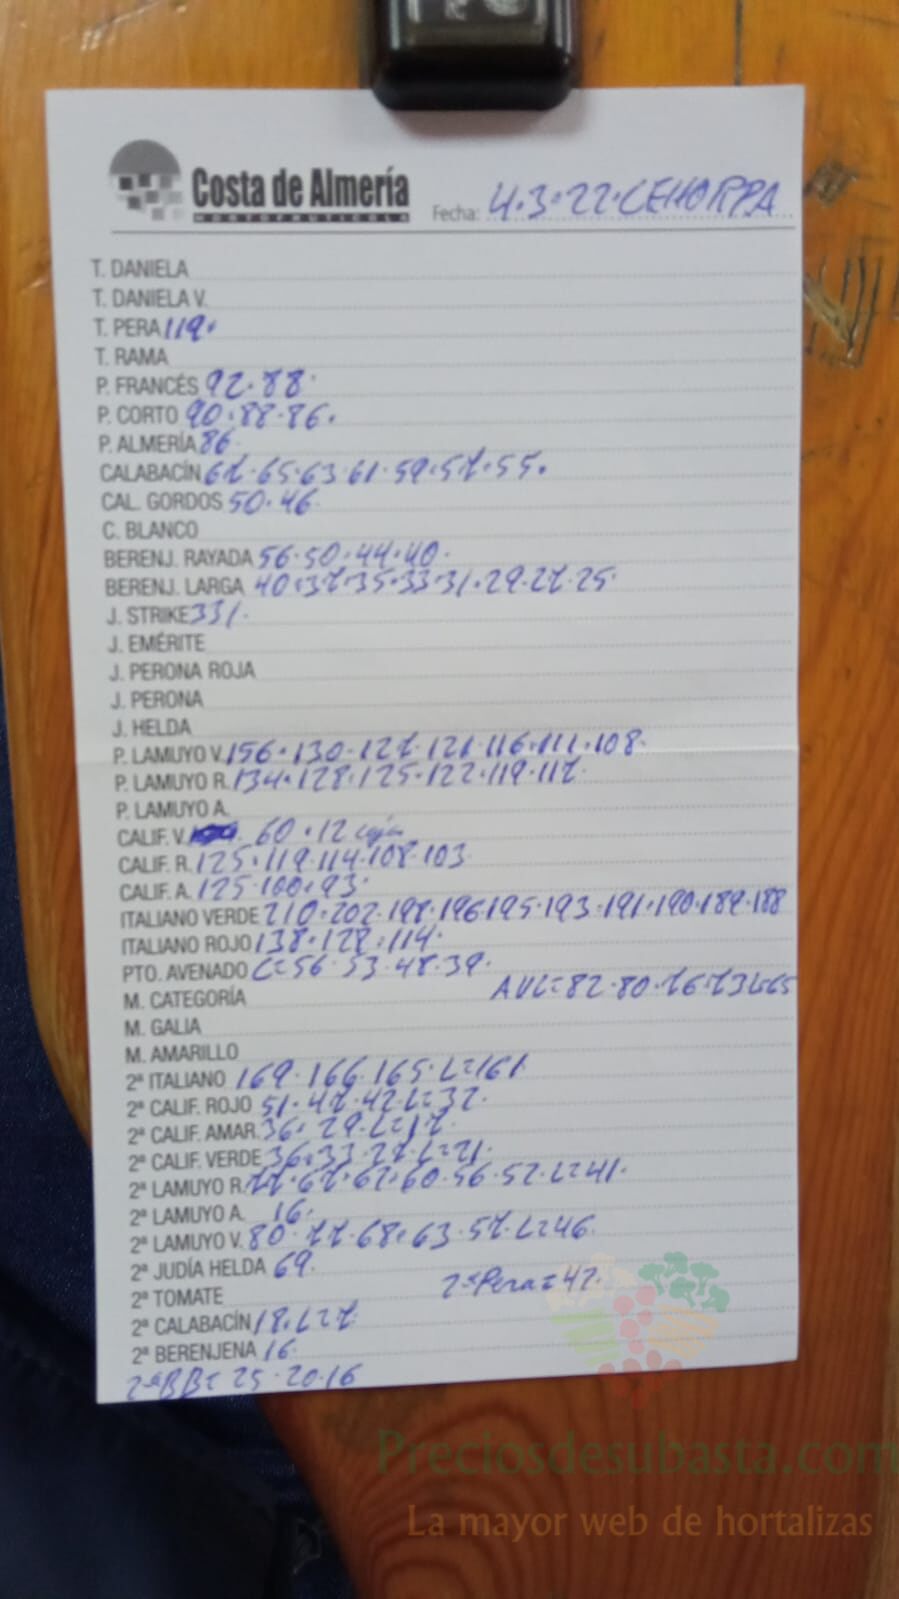 Costa de Almería
HORTOFRUTICOLA
Fecha: 4.3.22.CEHORPA
T. DANIELA
T. DANIELA V.
T. PERA 119.
T. RAMA
P. FRANCÉS 92.88.
P. CORTO 90.88.86.
P. ALMERÍA 86.
CALABACÍN 67.65.63.61.59.57.55.
CAL. GORDOS 50.46.
C. BLANCO
BERENJ. RAYADA 56.50.44.40.
BERENJ. LARGA 40.37.35.33.31.29.27.25.
J. STRIKE 331.
J. EMÉRITE
J. PERONA ROJA
J. PERONA
J. HELDA
P. LAMUYO V. 156.130.127.121.116.111.108.
P. LAMUYO R. 134.128.125.122.119.117.
P. LAMUYO A.
CALIF. V. 60.12 caja
CALIF. R. 125.119.114.108.103
CALIF. A. 125.100.93.
ITALIANO VERDE 210.202.198.196.195.193.191.190.189.188
ITALIANO ROJO 138.128.114.
PTO. AVENADO C=56.53.48.39.
M. CATEGORÍA AVL=82.80.76.73L=65
M. GALIA
M. AMARILLO
2ª ITALIANO 169.166.165.L=161
2ª CALIF. ROJO 51.47.42.L=32.
2ª CALIF. AMAR. 36.29.L=17.
2ª CALIF. VERDE 36.33.27.L=21.
2ª LAMUYO R. 77.67.62.60.56.52.L=41.
2ª LAMUYO A. 16.
2ª LAMUYO V. 80.77.68.63.57.L=46.
2ª JUDÍA HELDA 69.
2ª TOMATE 2ªPera=42.
2ª CALABACÍN 18.L=7.
2ª BERENJENA 16
2ªBB= 25.20.16
Preciosdesubasta.com
La mayor web de hortalizas